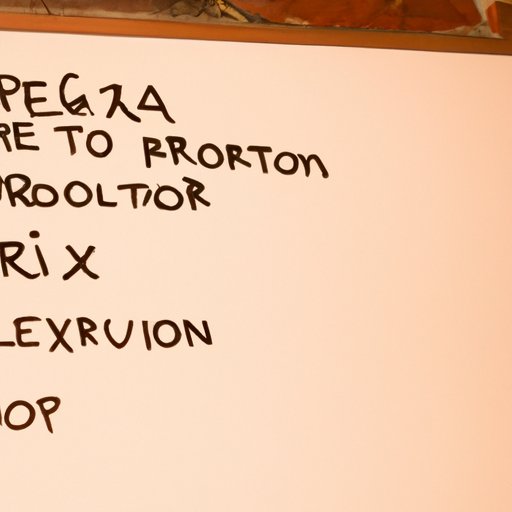 PEGRA
RE TO PRORTON
UROOLTIOR
RiX
LEXRUVION
IOP